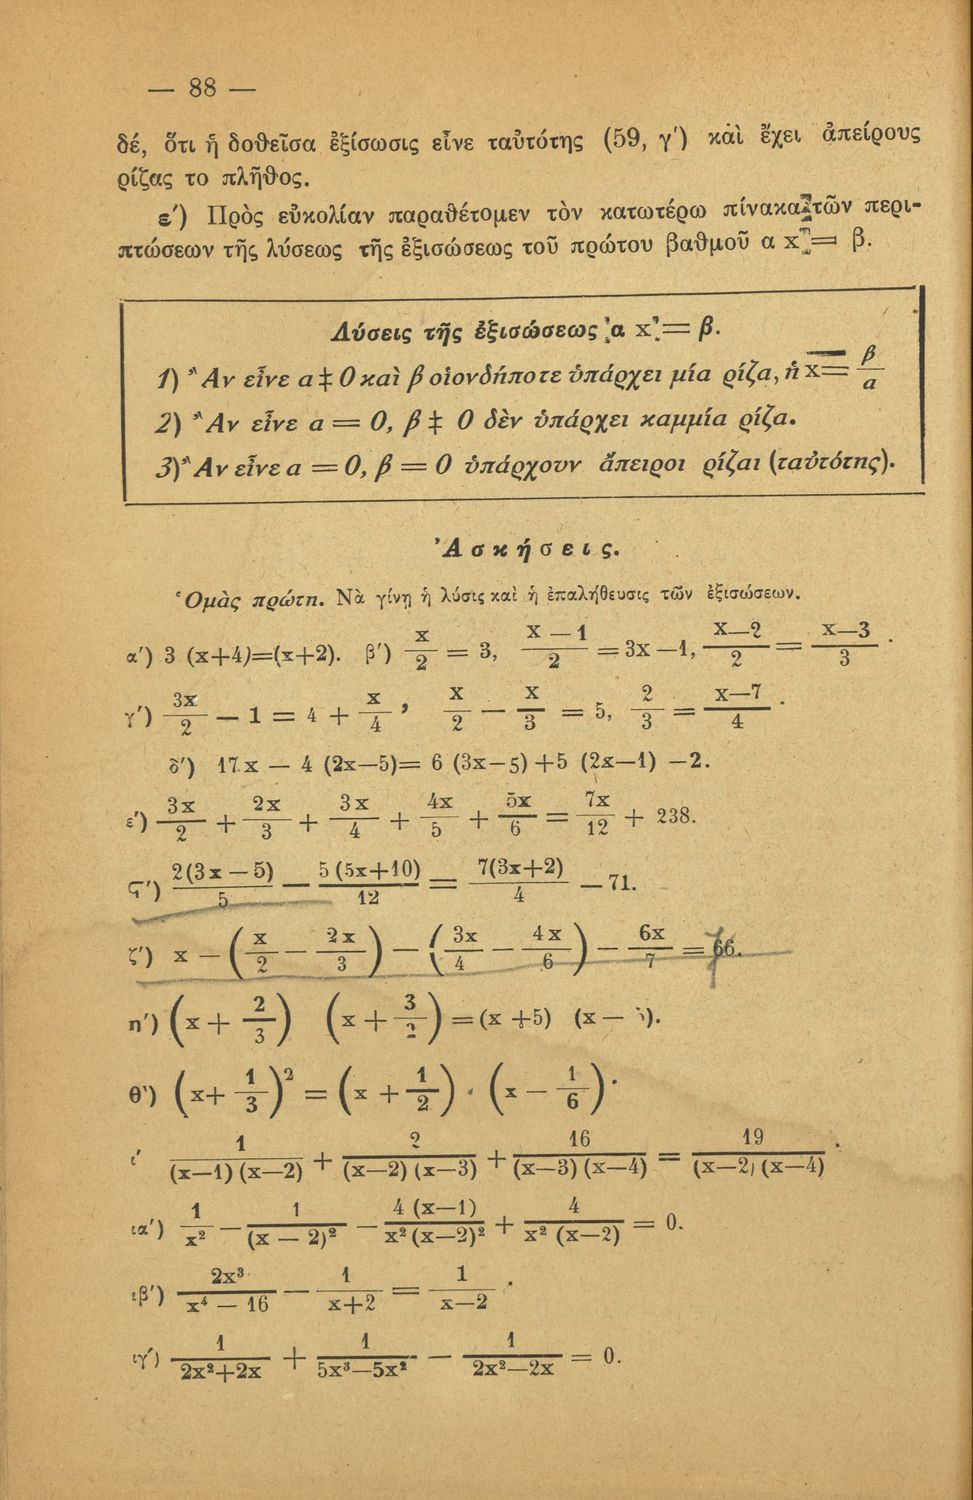 — 88 —
δέ, ὅτι ἡ δοθεῖσα ἐξίσωσις εἶνε ταὐτότης (59, γ′) καὶ ἔχει ἀπείρους
ρίζας το πλῆθος.
ε′) Πρὸς εὐκολίαν παραθέτομεν τὸν κατωτέρω πίνακα τῶν περι-
πτώσεων τῆς λύσεως τῆς ἐξισώσεως τοῦ πρώτου βαθμοῦ α x = β.
Λύσεις τῆς ἐξισώσεως α x = β.
1) Ἂν εἶνε α ‡ 0 καὶ β οἱονδήποτε ὑπάρχει μία ρίζα, ἡ x = β/α
2) Ἂν εἶνε α = 0, β ‡ 0 δὲν ὑπάρχει καμμία ρίζα.
3) Ἂν εἶνε α = 0, β = 0 ὑπάρχουν ἄπειροι ρίζαι (ταὐτότης).
Ἀσκήσεις.
Ὁμὰς πρώτη. Νὰ γίνῃ ἡ λύσις καὶ ἡ ἐπαλήθευσις τῶν ἐξισώσεων.
α′) 3 (x+4)=(x+2). β′) x/2 = 3, (x—1)/2 = 3x—1, (x—2)/2 = (x—3)/3.
γ′) 3x/2 — 1 = 4 + x/4, x/2 — x/3 = 5, 2/3 = (x—7)/4.
δ′) 17x — 4 (2x—5)= 6 (3x—5) +5 (2x—1) —2.
ε′) 3x/2 + 2x/3 + 3x/4 + 4x/5 + 5x/6 = 7x/12 + 238.
ϛ′) 2(3x—5)/5 — 5(5x+10)/12 = 7(3x+2)/4 — 71.
ζ′) x — (x/2 — 2x/3) — (3x/4 — 4x/6) — 6x/7 = 66.
η′) (x + 2/3) (x + 3/2) = (x +5) (x — ).
θ′) (x+ 1/3)² = (x + 1/2) · (x — 1/6).
ι′ 1/(x—1) (x—2) + 2/(x—2) (x—3) + 16/(x—3) (x—4) = 19/(x—2) (x—4).
ια′) 1/x² — 1/(x — 2)² — 4 (x—1)/x² (x—2)² + 4/x² (x—2) = 0.
ιβ′) 2x³/(x⁴ — 16) — 1/(x+2) = 1/(x—2).
ιγ′) 1/(2x²+2x) + 1/(5x³—5x²) — 1/(2x²—2x) = 0.